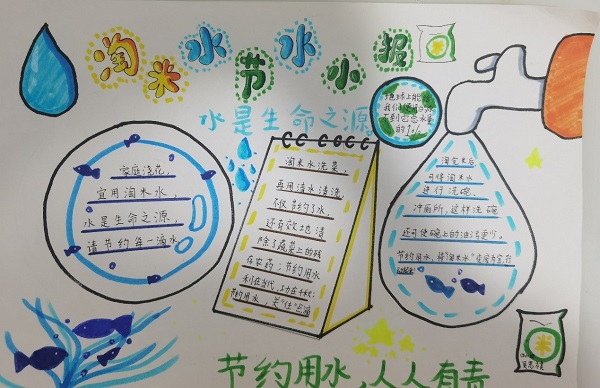 淘米水节水小报
米
水是生命之源
地球上能
我们使用的水
不到它总水量
的1%
家庭浇花,
宜用淘米水,
水是生命之源、
请节约每一滴水
淘米水洗菜,
再用清水清洗,
不仅节约了水,
还有效地清
除了蔬菜上的残
存农药;节约用水
利在当代,功在千秋;
节约用水,关"住"点滴
淘完米后
可将淘米水
进行洗碗,
冲厕所,这样洗碗
还可使碗上的油渍更少。
节约用水,将"淘米水"
米
节约用水,人人有责